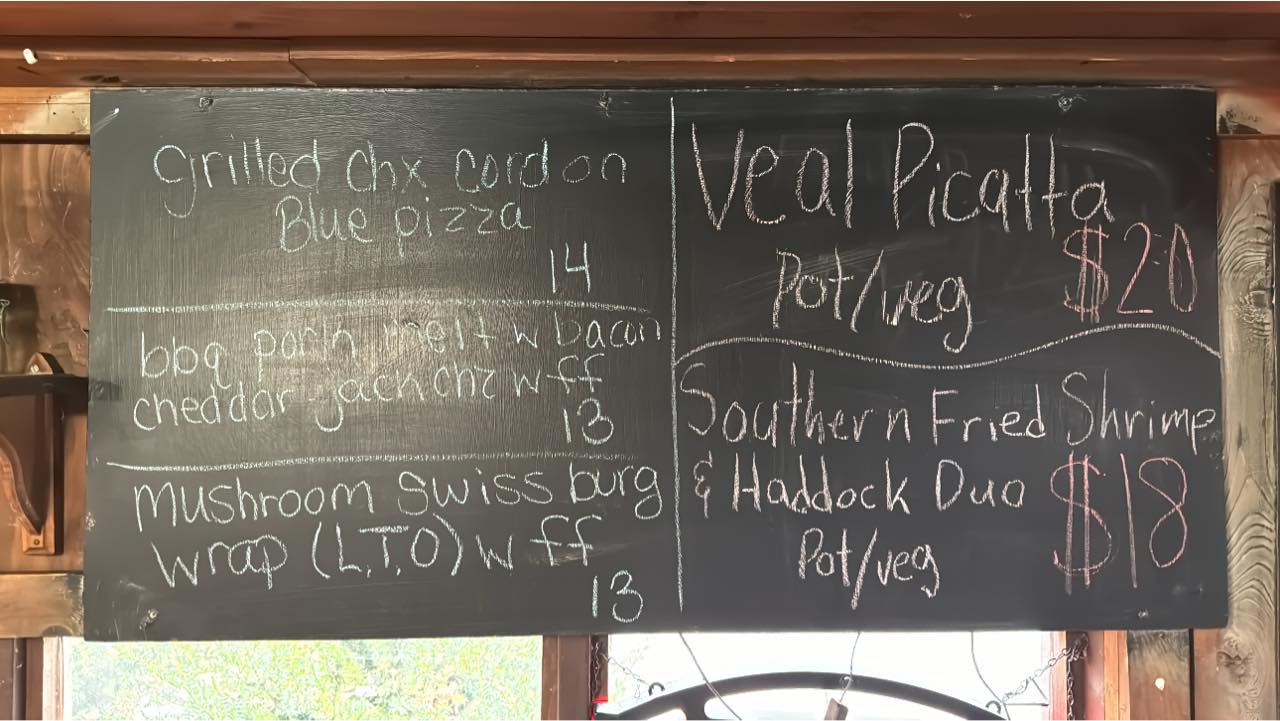 Grilled Chx cordon
Blue pizza
14
bbq pork melt w bacon
cheddar jack chz w ff
13
Mushroom swiss burg
wrap (L,T,O) w ff
13
Veal Picatta
$20
Pot/veg
Southern Fried Shrimp
& Haddock Duo
$18
Pot/veg